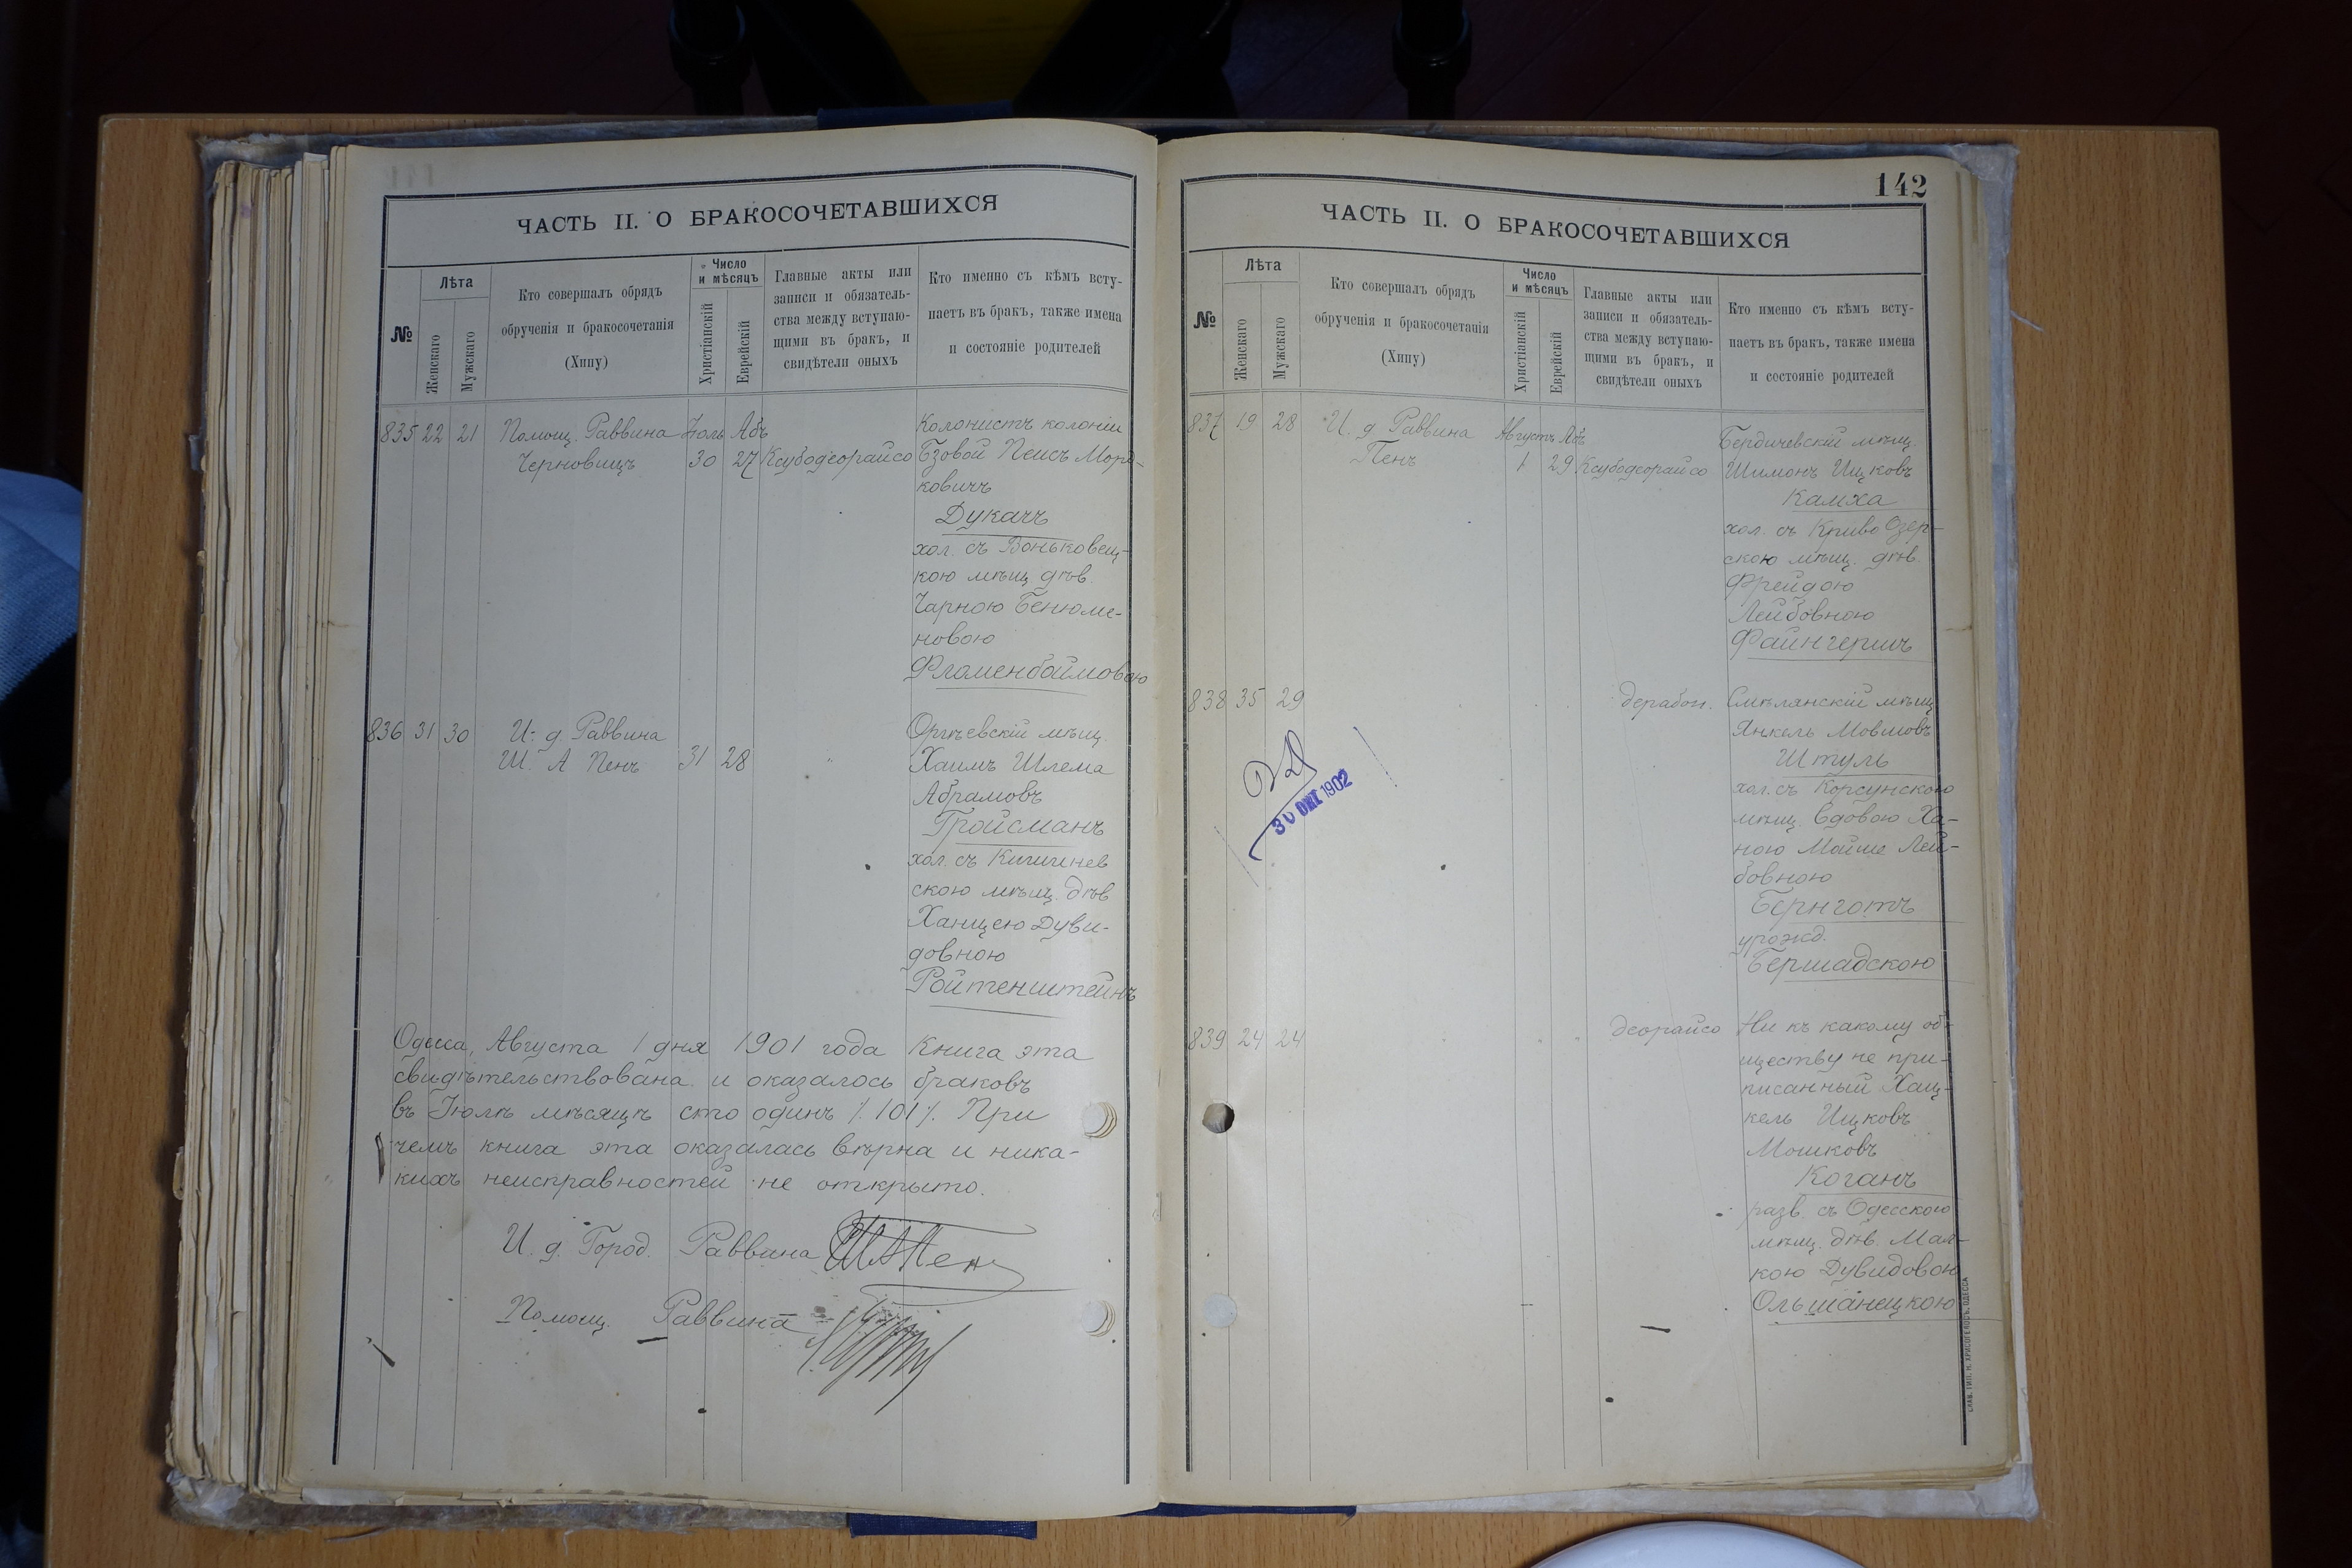 ЧАСТЬ II. О БРАКОСОЧЕТАВШИХСЯ
№
Лѣта
Женскаго
Мужскаго
Кто совершалъ обрядъ
обрученія и бракосочетанія
(Хипу)
Число
и мѣсяцъ
Христіанскій
Еврейскій
Главные акты или
записи и обязатель-
ства между вступаю-
щими въ бракъ, и
свидѣтели оныхъ
Кто именно съ кѣмъ всту-
паетъ въ бракъ, также имена
и состояніе родителей
835 22 21 Помощ. Раввина Іюль Абъ Колонистъ колоніи
Черновицъ 30 27 Ксубодеорайсо Бзовой Пейсъ Морд-
ковичъ
Дукачъ
хол. съ Воньковец-
кою мѣщ. дѣв.
Чарною Бенюми-
новою
Фломенбаймовою
836 31 30 И. д. Раввина Оргѣевскій мѣщ.
Ш. А Пенъ 31 28 " Хаимъ Шлема
Абрамовъ
Гройсманъ
хол. съ Кишинев
скою мѣщ. дѣв
Ханцею Дуви-
довною
Ройтенштейнъ
Одесса, Августа 1 дня 1901 года Книга эта
свидѣтельствована и оказалось браковъ
въ Іюлѣ мѣсяцѣ сто одинъ /101/. При
чемъ книга эта оказалась вѣрна и ника-
кихъ неисправностей не открыто.
И. д. Город. Раввина ШАПен
Помощ. Раввина
142
ЧАСТЬ II. О БРАКОСОЧЕТАВШИХСЯ
№
Лѣта
Женскаго
Мужскаго
Кто совершалъ обрядъ
обрученія и бракосочетанія
(Хипу)
Число
и мѣсяцъ
Христіанскій
Еврейскій
Главные акты или
записи и обязатель-
ства между вступаю-
щими въ бракъ, и
свидѣтели оныхъ
Кто именно съ кѣмъ всту-
паетъ въ бракъ, также имена
и состояніе родителей
837 19 28 И. д Раввина Августъ Абъ Бердичевскій мѣщ.
Пенъ 1 29 Ксубодеорайсо Шимонъ Ицковъ
Камха
хол. съ Криво Озер-
скою мѣщ. дѣв.
Фрейдою
Лейбовною
Файнгершъ
838 35 29 " " " дерабон. Смѣлянскій мѣщ
Янкель Мовшовъ
Штуль
хол. съ Корсунскою
мѣщ. вдовою Ха-
ною Майше Лей-
бовною
Бернготъ
урожд.
Бершадскою
30 ОКТ 1902
839 24 24 " " деорайсо Ни къ какому об-
ществу не при-
писанный Хац-
кель Ицковъ
Мошковъ
Коганъ
разв. съ Одесскою
мѣщ. дѣв. Мал-
кою Дувидовою
Ольшанецкою
СЛАВ. ТИП. Н. ХРИСОГЕЛОСЪ, ОДЕССА